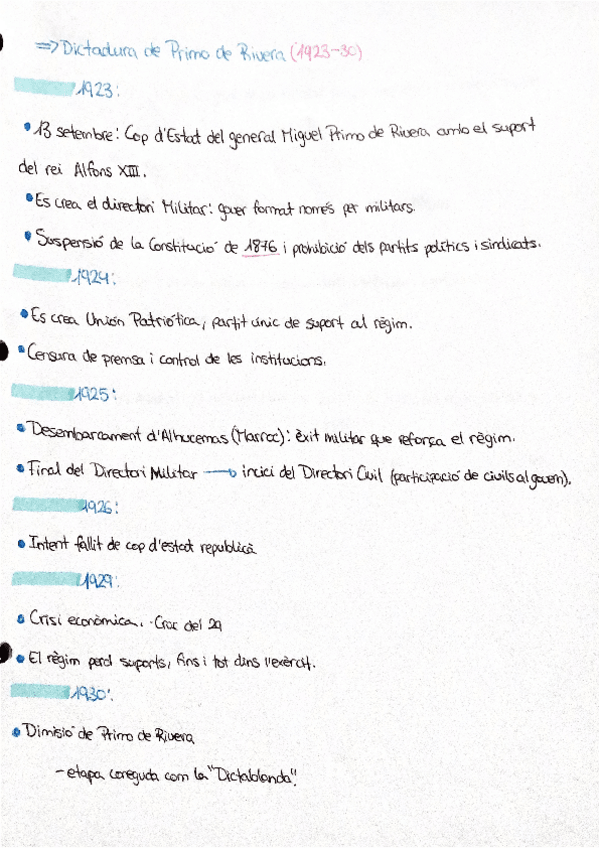 => Dictadura de Primo de Rivera (1923-30)
1923:
• 13 setembre: Cop d'Estat del general Miguel Primo de Rivera amb el suport
del rei Alfons XIII.
• Es crea el directori Militar: gover format només per militars.
• Suspensió de la Constitució de 1876 i prohibició dels partits polítics i sindicats.
1924:
• Es crea Unión Patriótica, partit únic de suport al règim.
• Censura de premsa i control de les institucions.
1925:
• Desembarcament d'Alhucemas (Marroc): èxit militar que reforça el règim.
• Final del Directori Militar → incici del Directori Civil (participació de civils al govern).
1926:
• Intent fallit de cop d'estat republicà
1929:
• Crisi econòmica. · Crac del 29
• El règim perd suports, fins i tot dins l'exèrcit.
1930:
• Dimisió de Primo de Rivera
- etapa coneguda com la "Dictablanda".